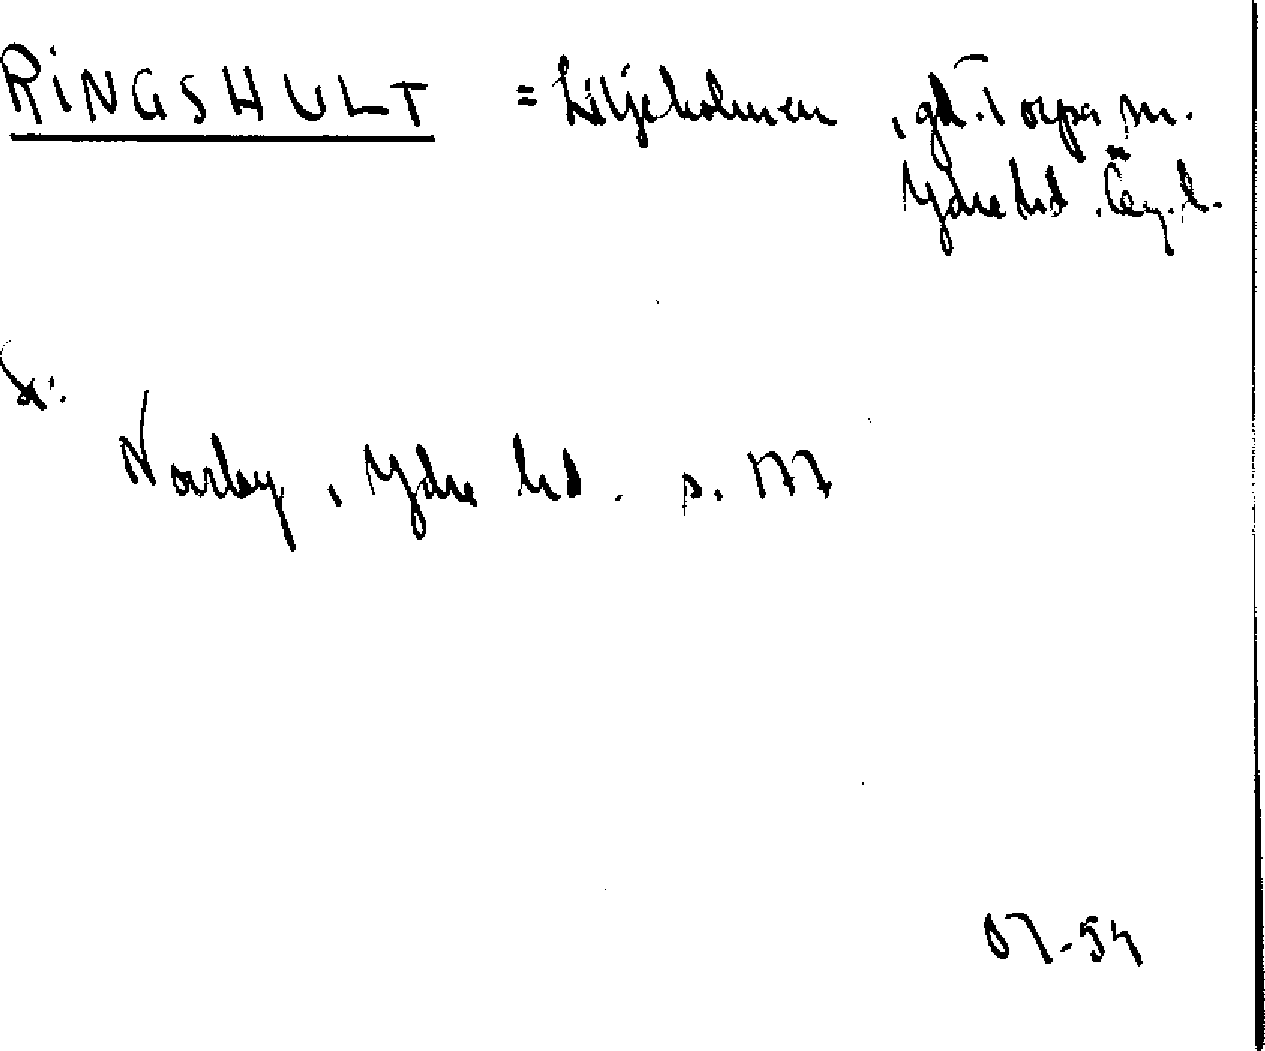 RINGSHULT = Liljeholmen, gd. Torpa sn.
Ydre hd. Ög. l.
Norrby, Ydre hd. s. 177
07-54